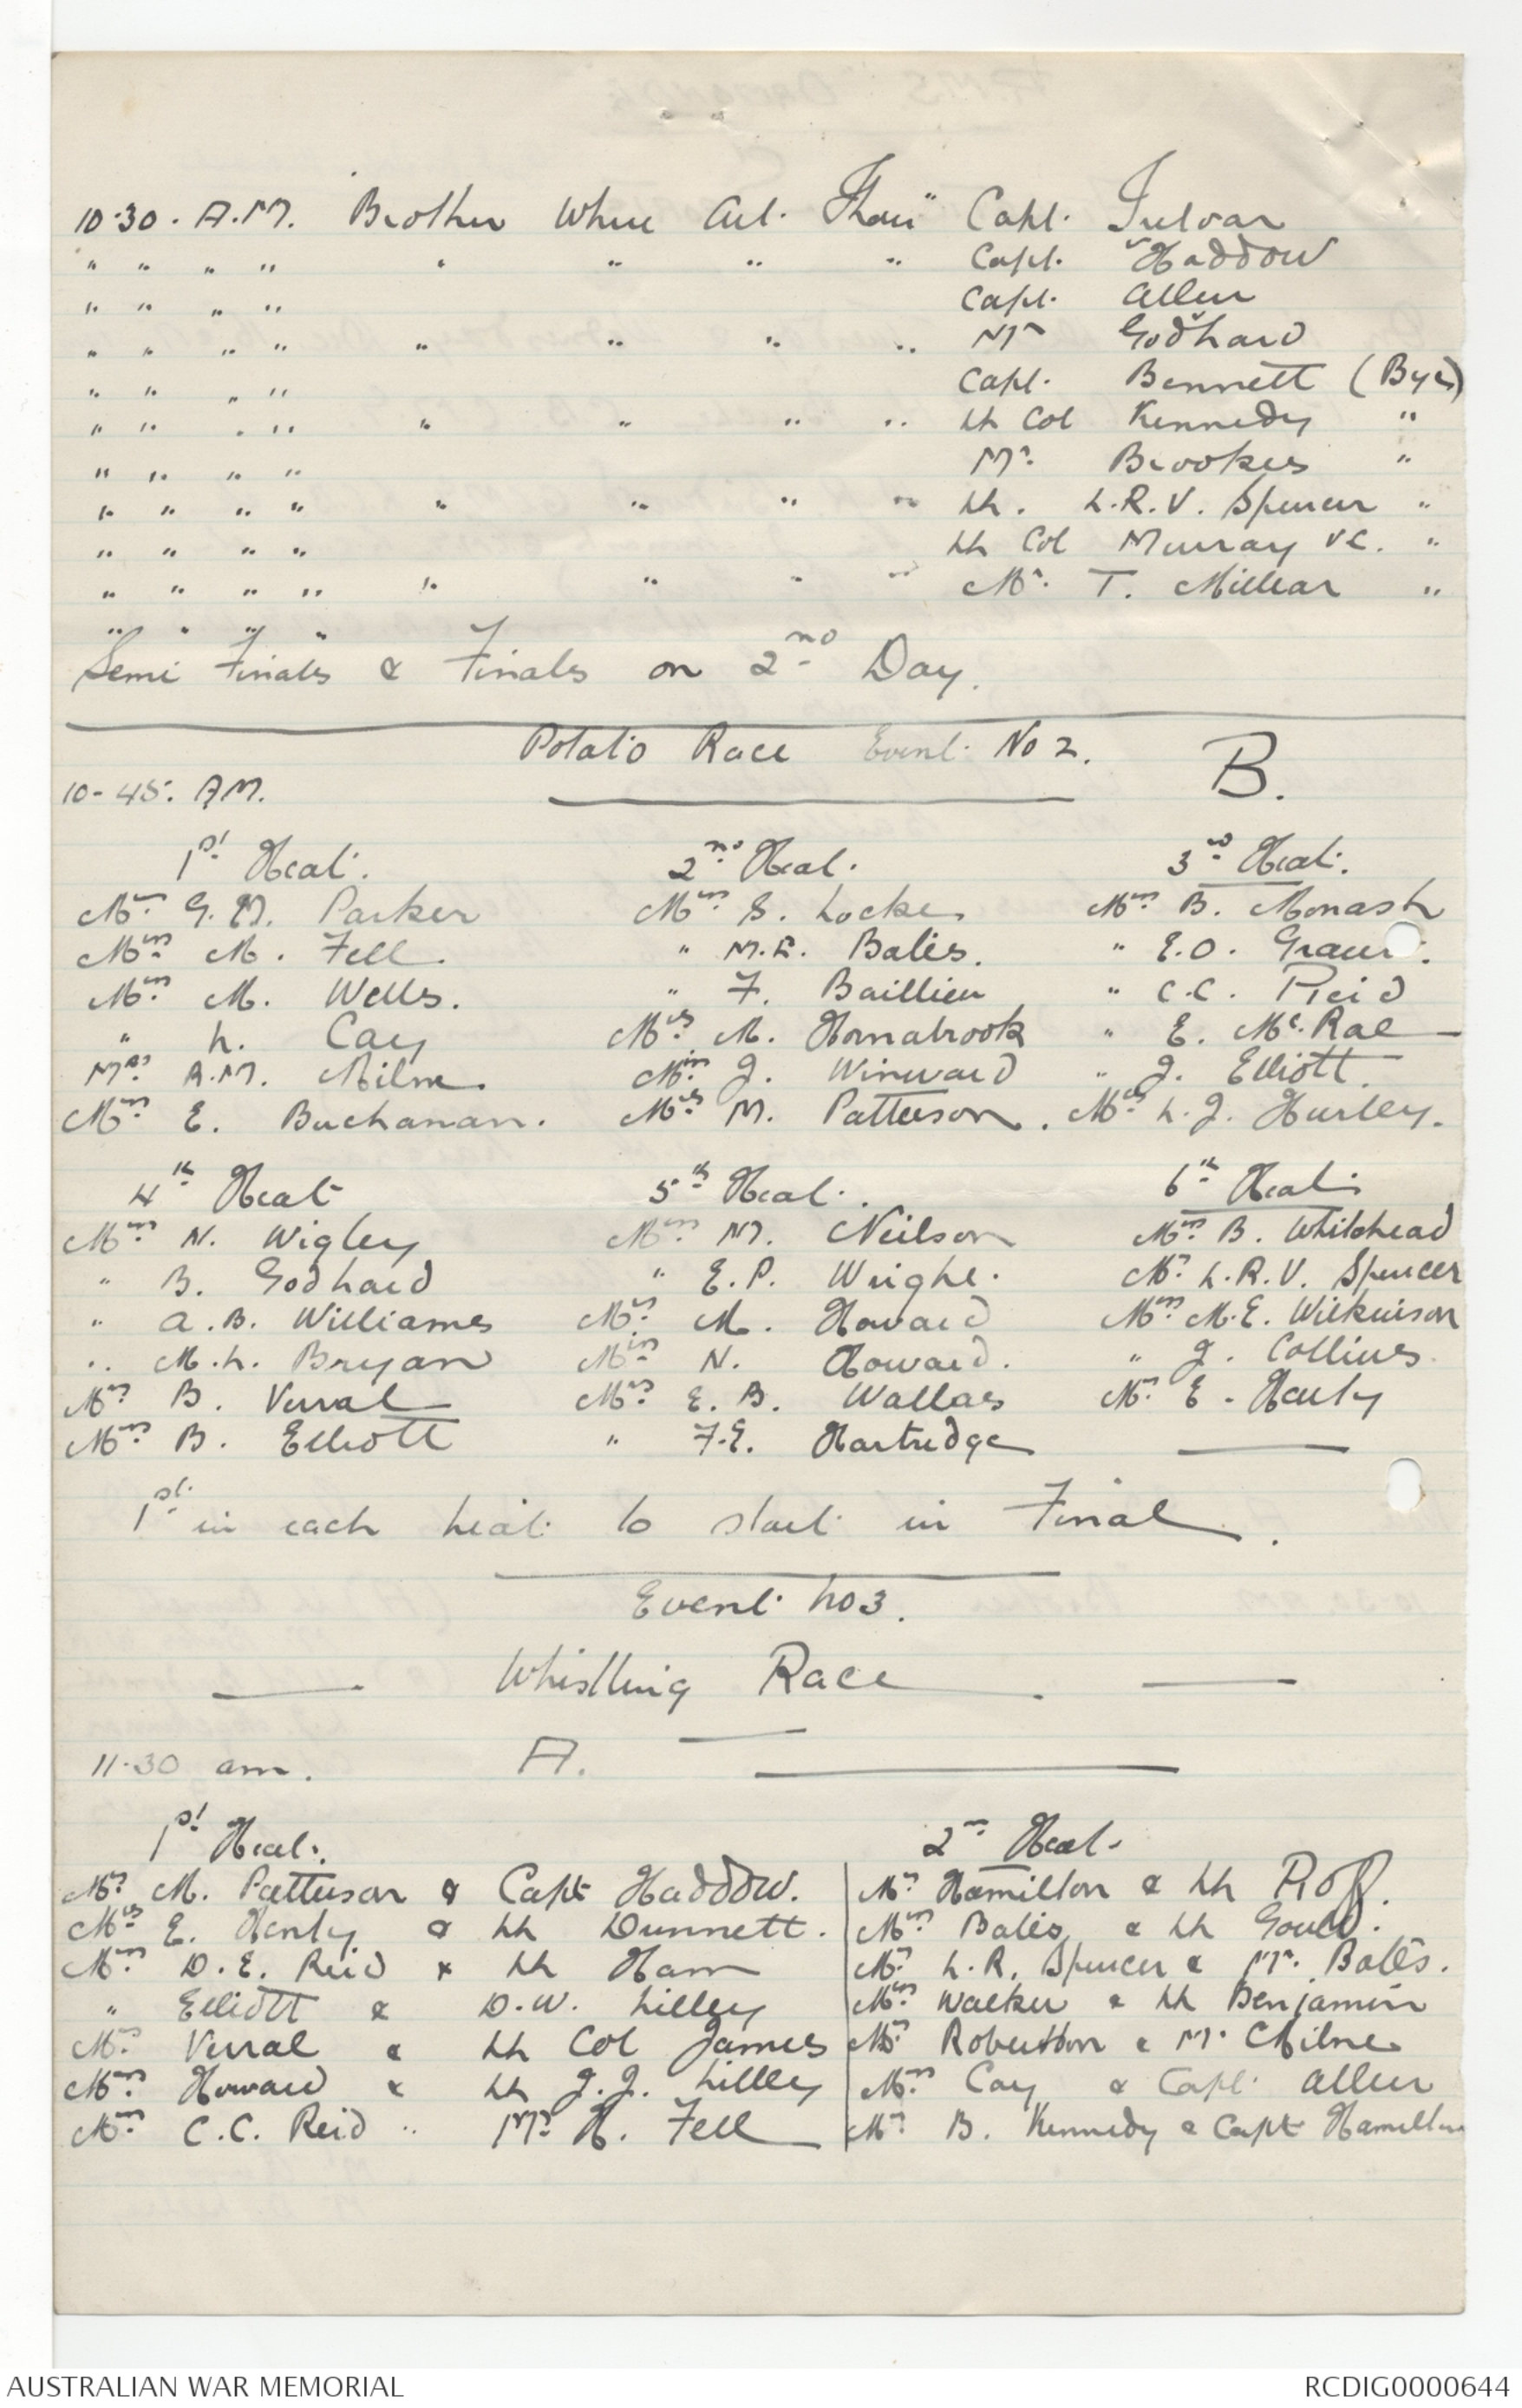 10.30. A.M. Brother Where Art Thou" Capt.
" " " " " " " " Capt. Haddow
" " " " Capt. Allen
" " " " " " " " Mr Godhard
" " " " Capt. Bennett (Bye)
" " " " " " " " Lt Col Kennedy "
" " " " Mr. Brookes "
" " " " " " " " Lt. L.R.V. Spencer "
" " " " Lt Col Murray VC. "
" " " " " " " " Mr. T. Millear "
" " " "
Semi Finals & Finals on 2nd Day.
Potato Race Event No 2. B.
10-45. AM.
1st Heat. 2nd Heat. 3rd Heat.
Miss G. M. Parker Miss S. Locke. Miss B. Monash
Miss M. Fell. " M.E. Bates. " E.O.
Miss M. Wells. " F. Baillieu " C.C. Reid
" L. Cay Mrs M. Hornabrook " E. McRae
Mrs A.M. Milne. Miss J. Winward " J. Elliott.
Miss E. Buchanan. Mrs M. Patterson. Mrs L. J. Hurley.
4th Heat 5th Heat. 6th Heat.
Miss N. Wigley Miss M. Neilson Miss B. Whitehead
" B. Godhard " E.P. Wright. Mrs L.R.V. Spencer
" A.B. Williames Mrs M. Howard Miss M.E. Wilkinson
" M.L. Bryan Miss N. Howard. " J. Collins
Mrs B. Verral Mrs E. B. Wallas Mrs E. Henty
Miss B. Elliott " F.E. Hartridge
1st in each heat to start in Final.
Event No 3.
Whistling Race.
11.30 am. A.
1st Heat. 2nd Heat.
Mrs M. Patterson & Capt Haddow. Mrs Hamilton & Lt Roff.
Mrs E. Henty & Lt Dunnett. Miss Bates & Lt Gould.
Miss D.E. Reid & Lt Ham Mrs L.R. Spencer & Mr. Bates.
" Elliott & D.W. Lilley Miss Walker & Lt Benjamin
Mrs Verral & Lt Col James Mrs Robertson & Mr Milne
Miss Howard & Lt J.J. Lilley Miss Cay & Capt. Allen
Miss C.C. Reid " Mr H. Fell Mrs B. Kennedy & Capt Hamilton
AUSTRALIAN WAR MEMORIAL RCDIG0000644